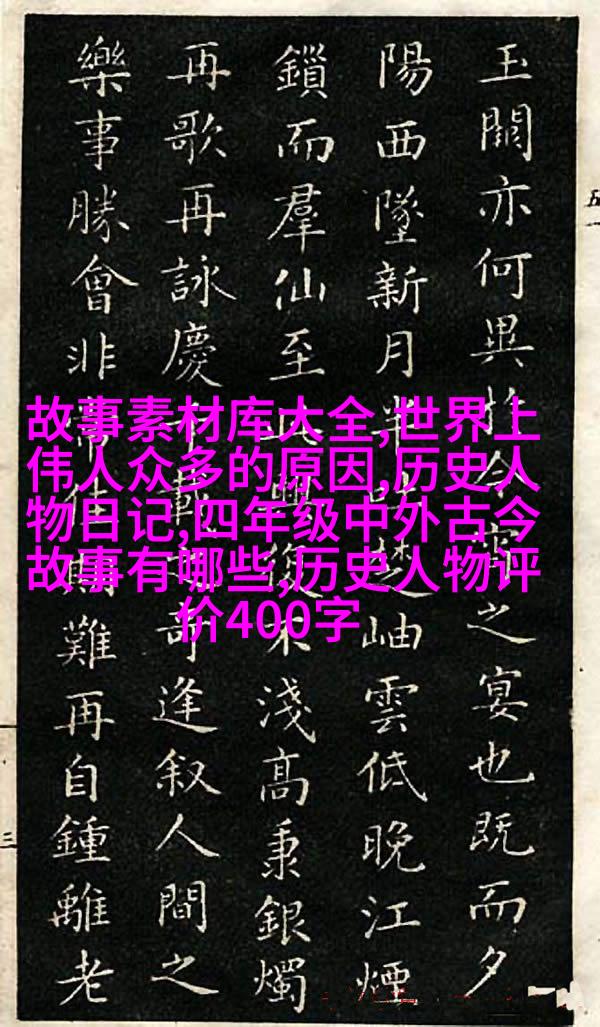 故事素材库大全,世界上
伟人众多的原因,历史人
物日记,四年级中外古今
故事有哪些,历史人物评
价400字
玉關亦何異於今之宴也既而夕
陽西墜新月半吐楚岫雲低晚江煙
鎖而羣仙至此興復不淺高秉銀燭
再歌再詠慶千載奇逢叙人間之
樂事勝會非常佳期難再自鍾離老
五一
三